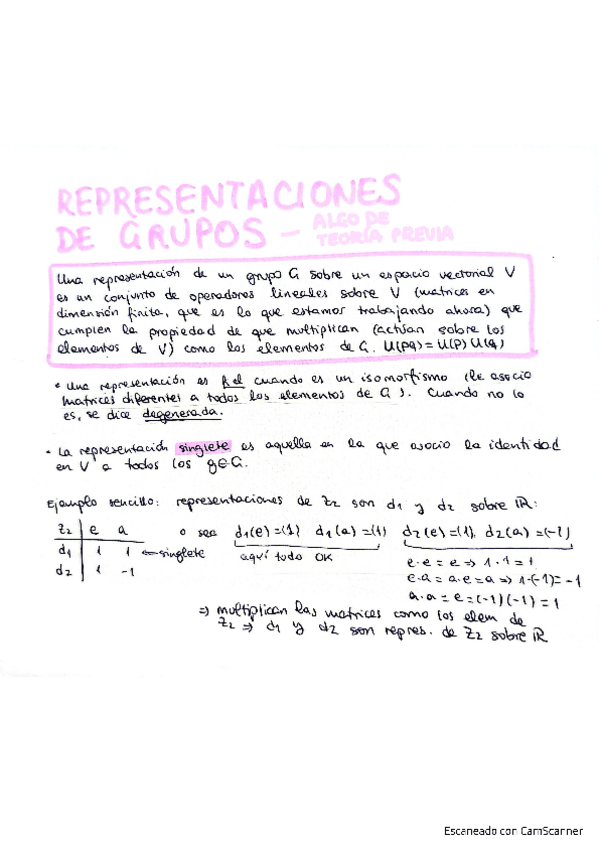 REPRESENTACIONES
DE GRUPOS - ALGO DE
TEORÍA PREVIA
Una representación de un grupo G sobre un espacio vectorial V
es un conjunto de operadores lineales sobre V (matrices en
dimensión finita, que es lo que estamos trabajando ahora) que
cumplen la propiedad de que multiplican (actúan sobre los
elementos de V) como los elementos de G. U(pq) = U(p) U(q)
• Una representación es fiel cuando es un isomorfismo (le asocio
matrices diferentes a todos los elementos de G). Cuando no lo
es, se dice degenerada.
• La representación singlete es aquella en la que asocio la identidad
en V a todos los g∈G.
Ejemplo sencillo: representaciones de Z2 son d1 y d2 sobre ℝ:
Z2 | e a o sea d1(e) = (1) d1(a) = (1) d2(e) = (1), d2(a) = (-1)
d1 | 1 1 ← singlete aquí todo OK
d2 | 1 -1
e·e = e ⇒ 1·1 = 1
e·a = a·e = a ⇒ 1·(-1) = -1
a·a = e = (-1)(-1) = 1
⇒ multiplican las matrices como los elem de
Z2 ⇒ d1 y d2 son repres. de Z2 sobre ℝ
Escaneado con CamScanner